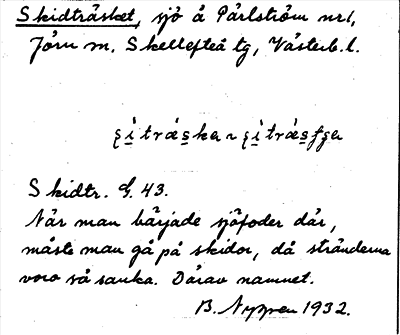 Skidträsket, sjö å Pärlström nr 1,
Jörn sn, Skellefteå tg, Västerb. l.
ʂi̱trás̱ka ~ ʂi̱trás̱ʃʂa
Skidtr. G. 43.
När man bärjade sjöfoder där,
måste man gå på skidor, då stränderna
voro så sanka. Därav namnet.
1932.